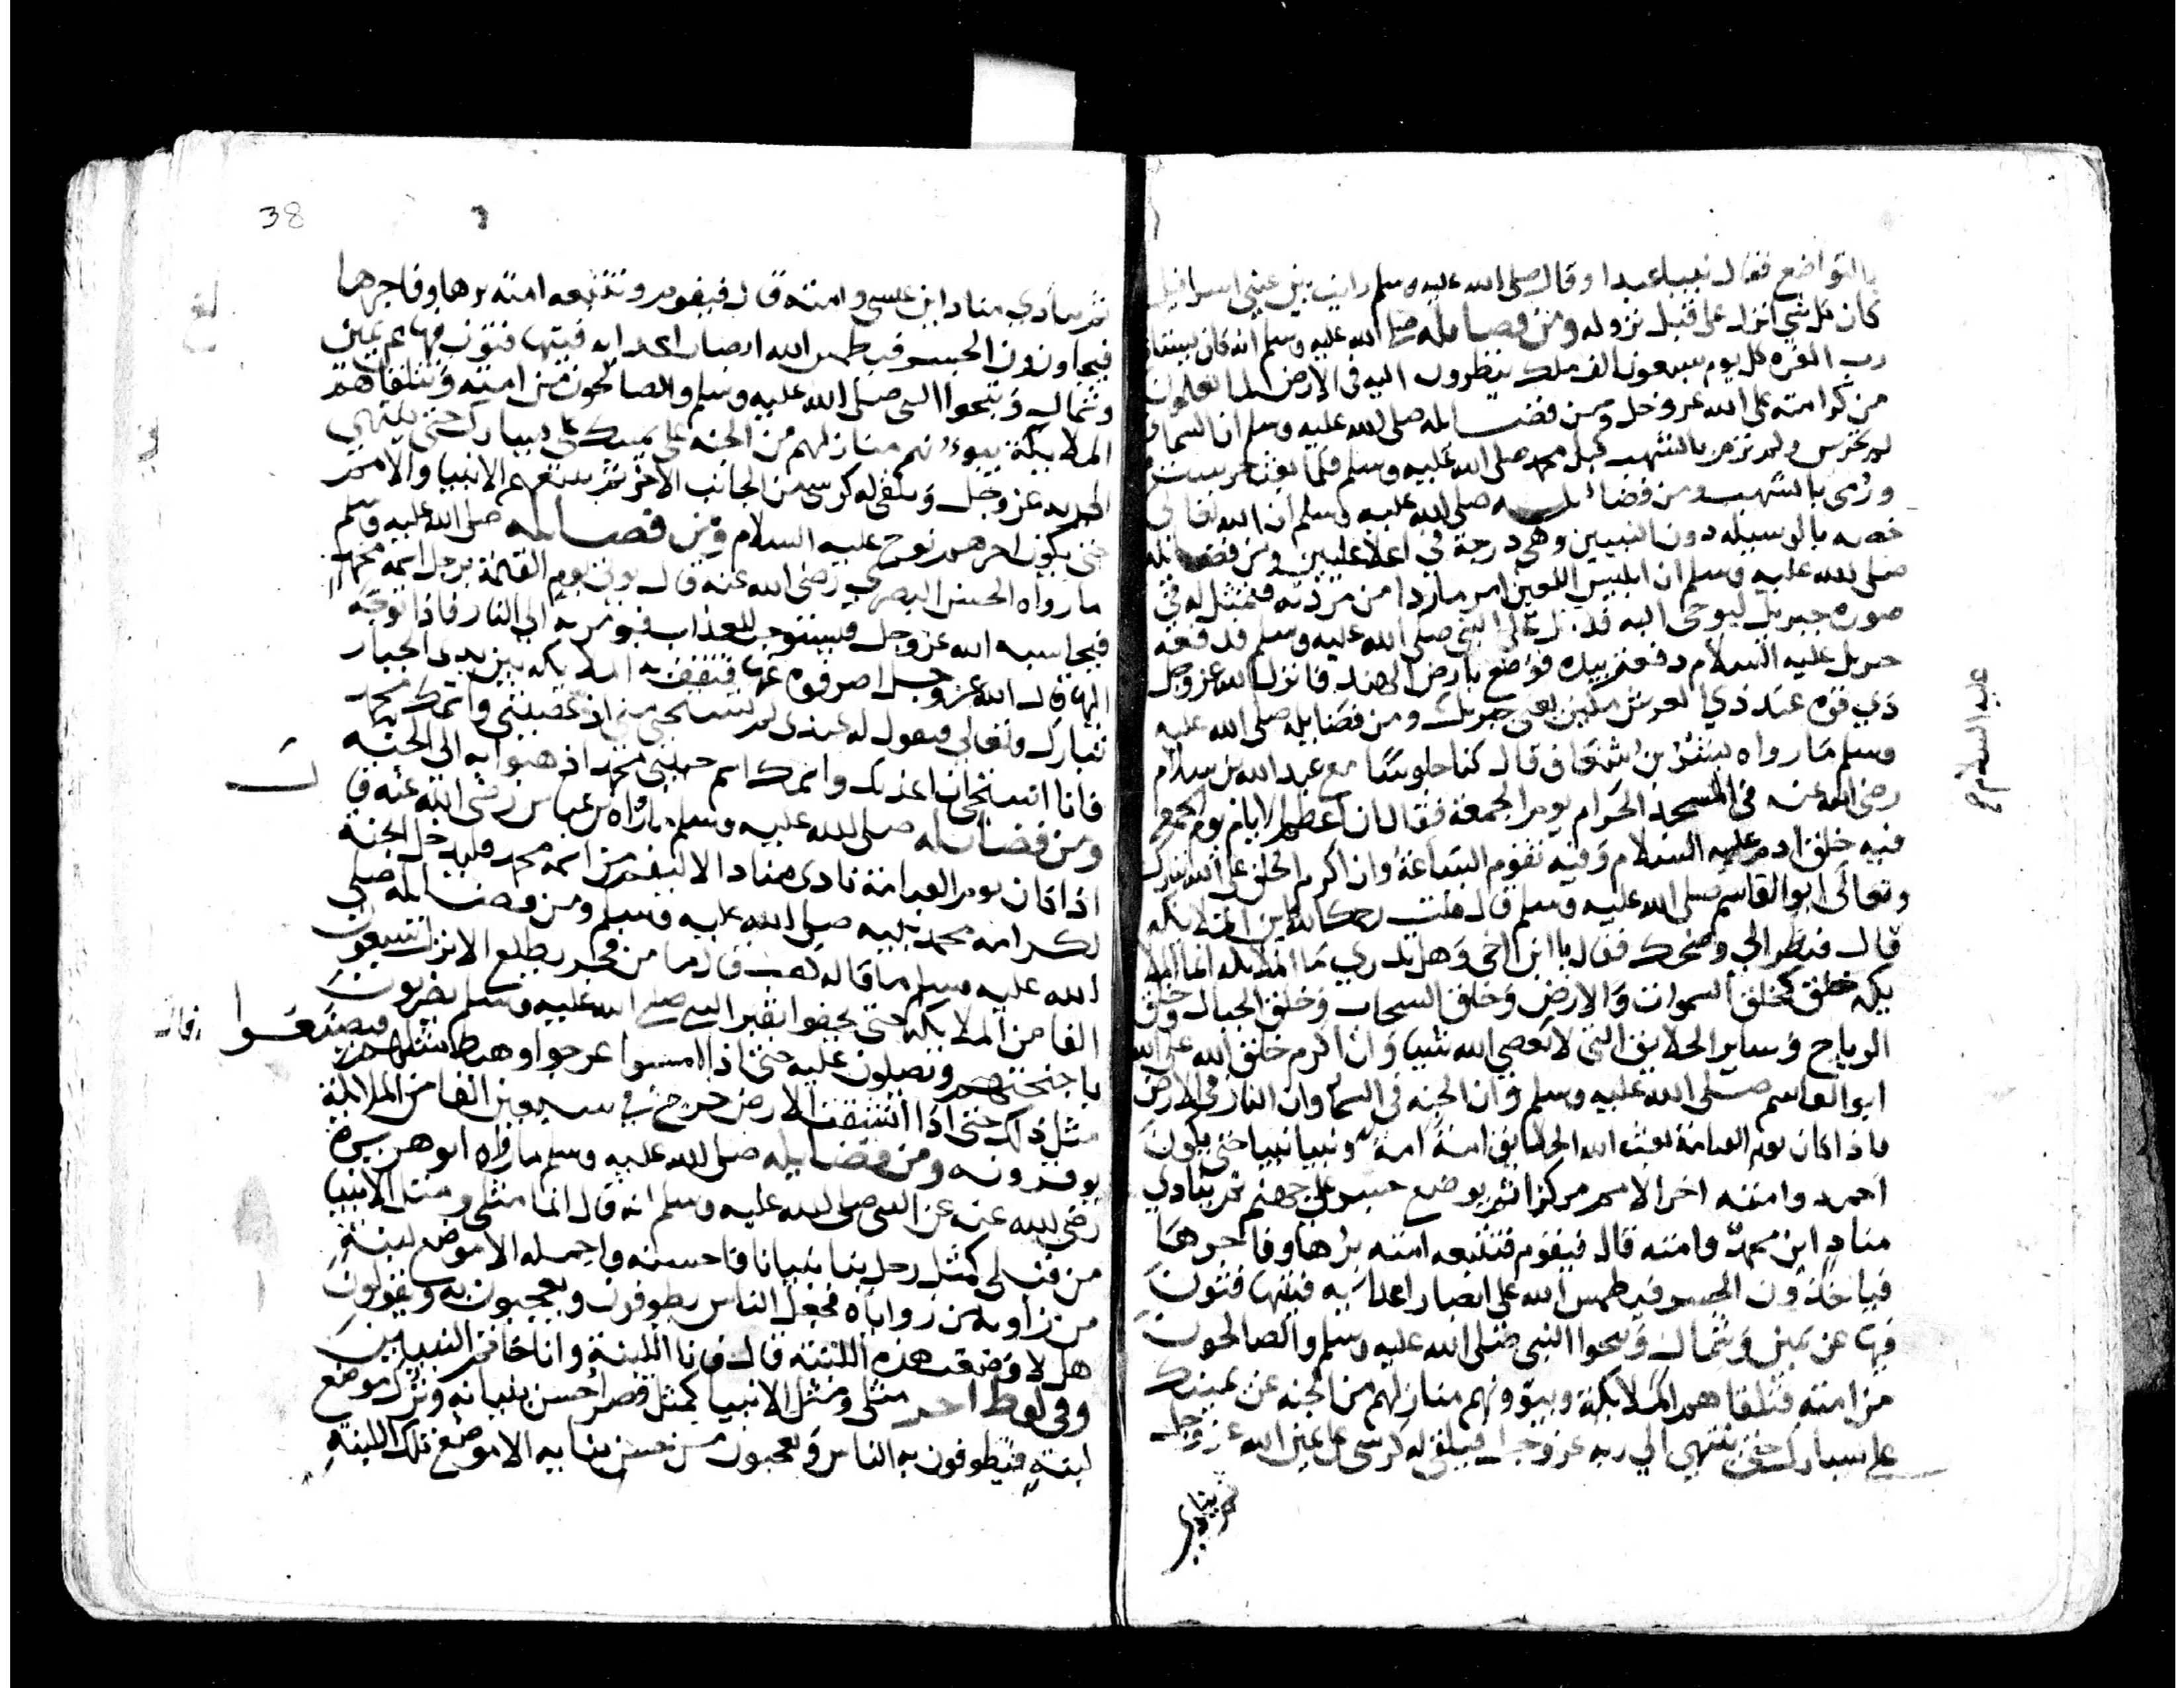 بالتواضع فقال نبيا عبدا وقال صلى الله عليه وسلم رايت بين عيني اسرافيل
كان كل شي انزل على قبل نزوله ومن فضايله صلى الله عليه وسلم انه كان
رب العزه كل يوم سبعون الف ملك ينظرون اليه في الارض لما يعلمون
من كرامته على الله عز وجل ومن فضايله صلى الله عليه وسلم ان السما
لم تحرس ولم ترم بالشهب قبل محمد صلى الله عليه وسلم فلما بعث حرست
ورمى بالشهب ومن فضائله صلى الله عليه وسلم ان الله تعالى
خصه بالوسيله دون النبيين وهي درجة في اعلا عليين ومن فضايله
صلى الله عليه وسلم ان ابليس اللعين امر ماردا من مردته فتمثل له في
صورة جبريل ليوحى اليه فدخل على النبي صلى الله عليه وسلم فدفعه
جبريل عليه السلام دفعة بيده فوضع بارض الهند فانزل الله عز وجل
ذي قوة عند ذي العرش مكين يعني جبريل ومن فضايله صلى الله عليه
وسلم ما رواه بشر بن شغاف قال كنا جلوسا مع عبد الله بن سلام
رضى الله عنه في المسجد الحرام يوم الجمعة فقال ان اعظم الايام يوم الجمعة
فيه خلق ادم عليه السلام وفيه تقوم الساعة وان اكرم الخلق على الله تبارك
وتعالى ابو القاسم صلى الله عليه وسلم قال قلت رحمك الله فاين الملايكه
قال فنظر الي وضحك فقال يا ابن اخي وهل تدري ما الملايكه انما الملا
يكه خلق كخلق السموات والارض وخلق السحاب وخلق الجبال وخلق
الرياح وساير الخلايق التي لا تعصي الله شيا وان اكرم خلق الله على الله
ابو القاسم صلى الله عليه وسلم وان الجنه في السما وان النار في الارض
فاذا كان يوم القيامة بعث الله الخلايق امة امة ونبيا نبيا حتى يكون
احمد وامته اخر الامم مركزا ثم يوضع جسر على جهنم ثم ينادي
مناد اين محمد وامته قال فيقوم فتتبعه امته برها وفاجرها
فياخذون الجسر فيطمس الله على ابصار اعدايه فيتهافتون
فيها عن يمين وشمال وينجوا النبي صلى الله عليه وسلم والصالحون
من امته فتلقاهم الملايكة وبيوونهم منازلهم من الجنه عن يمينك
على يسارك حتى ينتهي الي ربه عز وجل فيلقى له كرسى على يمين الله عز وجل
ثم ينادي
عليه السلام
38
ثم ينادي مناد اين عيسى وامته قال فيقوم وتتبعه امته برها وفاجرها
فيجاوزون الجسر فيطمس الله ابصار اعدايه فيتهافتون فيها عن يمين
وشمال وينجوا النبي صلى الله عليه وسلم والصالحون من امته وتتلقاهم
الملايكة يبوونهم منازلهم من الجنه على يمينك على يسارك حتى ينتهي
الى ربه عز وجل ويلقى له كرسي من الجانب الاخر ثم يتبعهم الانبيا والامم
حتى يكون اخرهم نوح عليه السلام ومن فضايله صلى الله عليه وسلم
ما رواه الحسن البصري رضى الله عنه قال يوتى يوم القيمة برجل اسمه محمد
فيحاسبه الله عز وجل فيستوجب العذاب فيومر به الى النار فاذا توجه
اليها قال الله عز وجل اصرفوه عنها فتقف به الملايكه بين يدي الجبار
تبارك وتعالى فيقول له عبدى لم تستحي مني اذ عصيتني واسمك محمد
فانا استحي ان اعذبك واسمك اسم حبيبي محمد اذهبوا به الى الجنه
ومن فضايله صلى الله عليه وسلم ما رواه بن عباس رضى الله عنه قال
اذا كان يوم القيامة نادى مناد الا ليقم من اسمه محمد فليدخل الجنة
لكرامه محمد نبيه صلى الله عليه وسلم ومن فضايله صلى
الله عليه وسلم ما قاله كعب قال ما من فجر يطلع الا نزل سبعون
الفا من الملايكه حتى يحفوا بقبر النبي صلى الله عليه وسلم يضربون
باجنحتهم ويصلون عليه حتى اذا امسوا عرجوا وهبط مثلهم فيصنعوا
مثل ذلك حتى اذا انشقت الارض خرج في سبعين الفا من الملايكة
يوقرونه ومن فضايله صلى الله عليه وسلم ما رواه ابو هريرة
رضى الله عنه عن النبي صلى الله عليه وسلم انه قال انما مثلي ومثل الانبيا
من قبلي كمثل رجل بنا بنيانا فاحسنه واجمله الا موضع لبنة
من زاوية من زواياه فجعل الناس يطوفون ويعجبون به ويقولون
هل لا وضعت هذه اللبنة قال فانا اللبنة وانا خاتم النبيين
وفي لفظ اخر مثلي ومثل الانبيا كمثل قصر احسن بنيانه وترك موضع
لبنة فيطوفون به الناس ويعجبون من حسن بنايه الا موضع تلك اللبنة